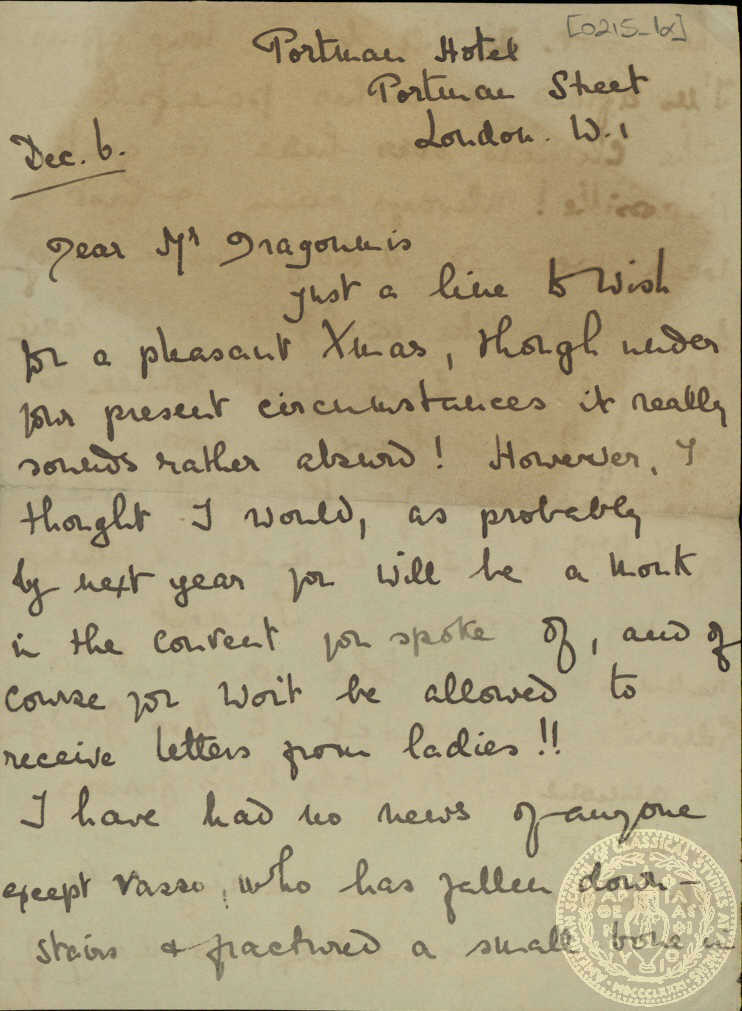 [0215_1α]
Portman Hotel
Portman Street
London. W.1
Dec. 6.
Dear Mr Dragoumis
just a line to wish
you a pleasant Xmas, though under
your present circumstances it really
sounds rather absurd! However, I
thought I would, as probably
by next year you will be a monk
in the convent you spoke of, and of
course you won't be allowed to
receive letters from ladies!!
I have had no news of anyone
except Vasso, who has fallen down-
stairs & fractured a small bone in